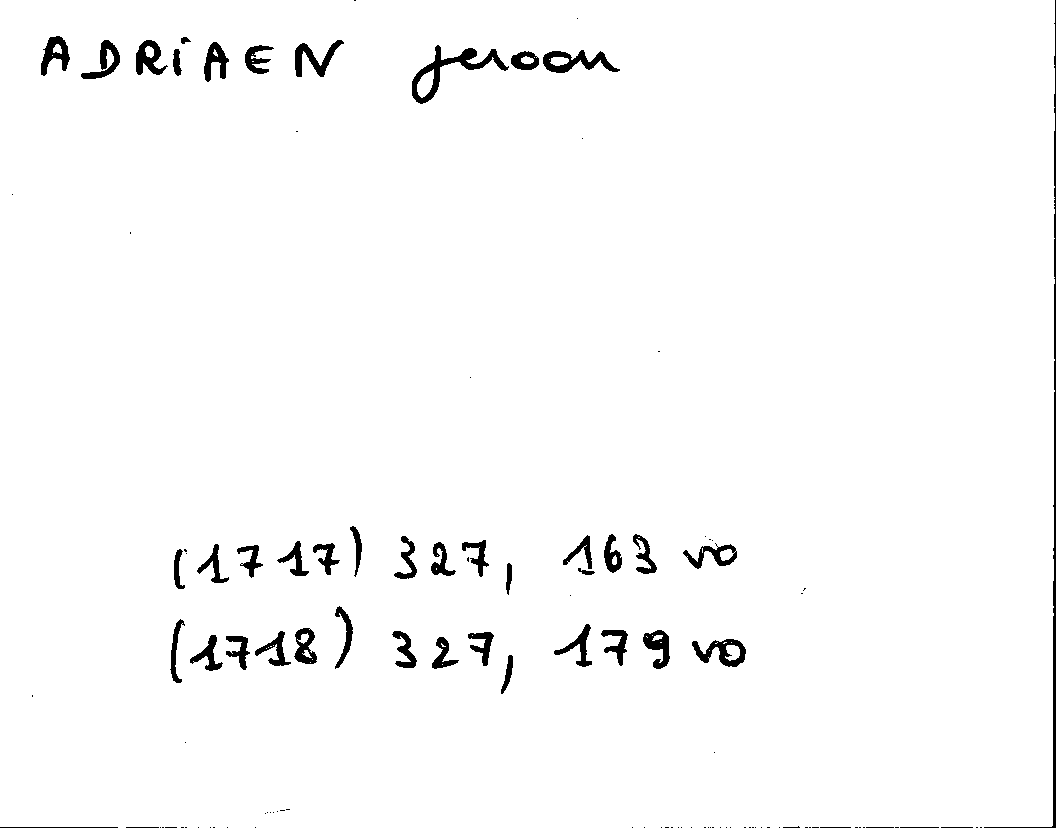 ADRIAEN Jeroon
(1717) 327, 163 vo
(1718) 327, 179 vo